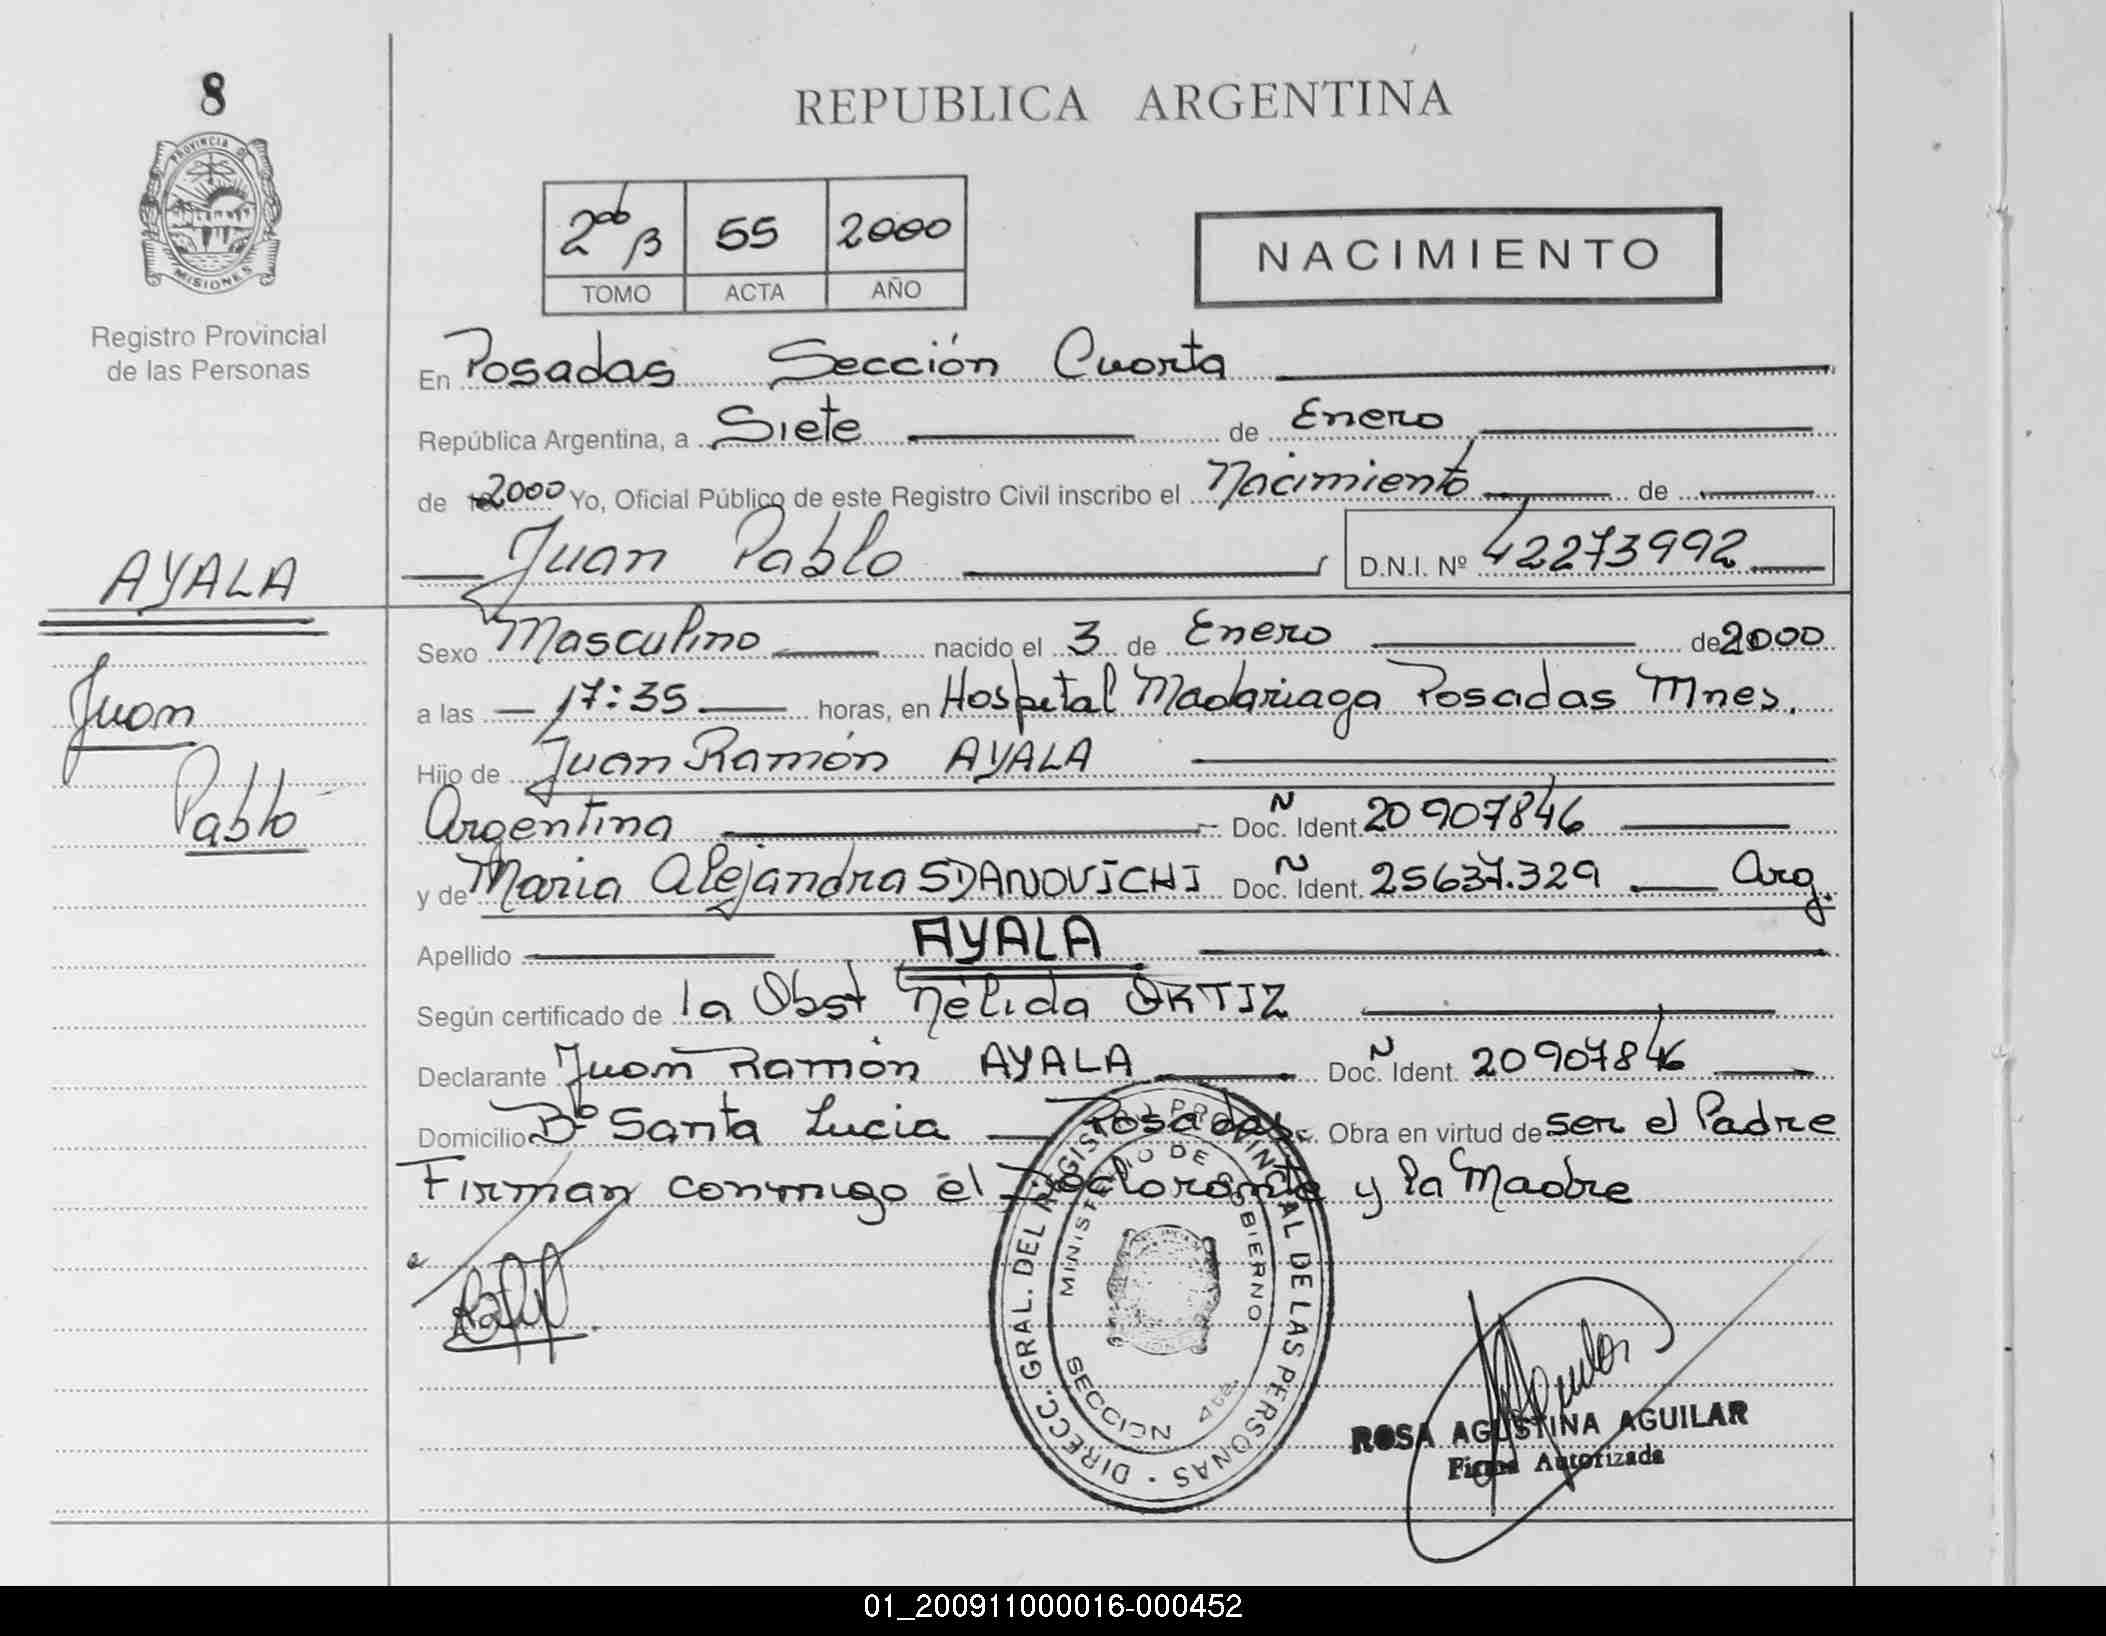 8
REPUBLICA ARGENTINA
PROVINCIA DE
MISIONES
Registro Provincial
de las Personas
55 2000
TOMO ACTA AÑO
NACIMIENTO
En Posadas Sección Cuarta
República Argentina, a Siete de Enero
de 2000 Yo, Oficial Público de este Registro Civil inscribo el Nacimiento de
Juan Pablo D.N.I. Nº 42273992
AYALA
Juan
Pablo
Sexo Masculino nacido el 3 de Enero de 2000
a las 17:35 horas, en Hospital Madariaga Posadas Mnes.
Hijo de Juan Ramón AYALA
Argentina Doc. Ident. 20907846
y de Maria Alejandra SDANOVICHI Doc. Ident. 25637.329 Arg.
Apellido AYALA
Según certificado de la Obst Nélida ORTIZ
Declarante Juan Ramón AYALA Doc. Ident. 20907846
Domicilio Bº Santa Lucia Posadas. Obra en virtud de ser el Padre
Firman conmigo el Declarante y la Madre
DIRECC. GRAL. DEL REGISTRO PROVINCIAL DE LAS PERSONAS
MINISTERIO DE GOBIERNO
SECCION 4ta.
ROSA AGUSTINA AGUILAR
Firma Autorizada
01_200911000016-000452